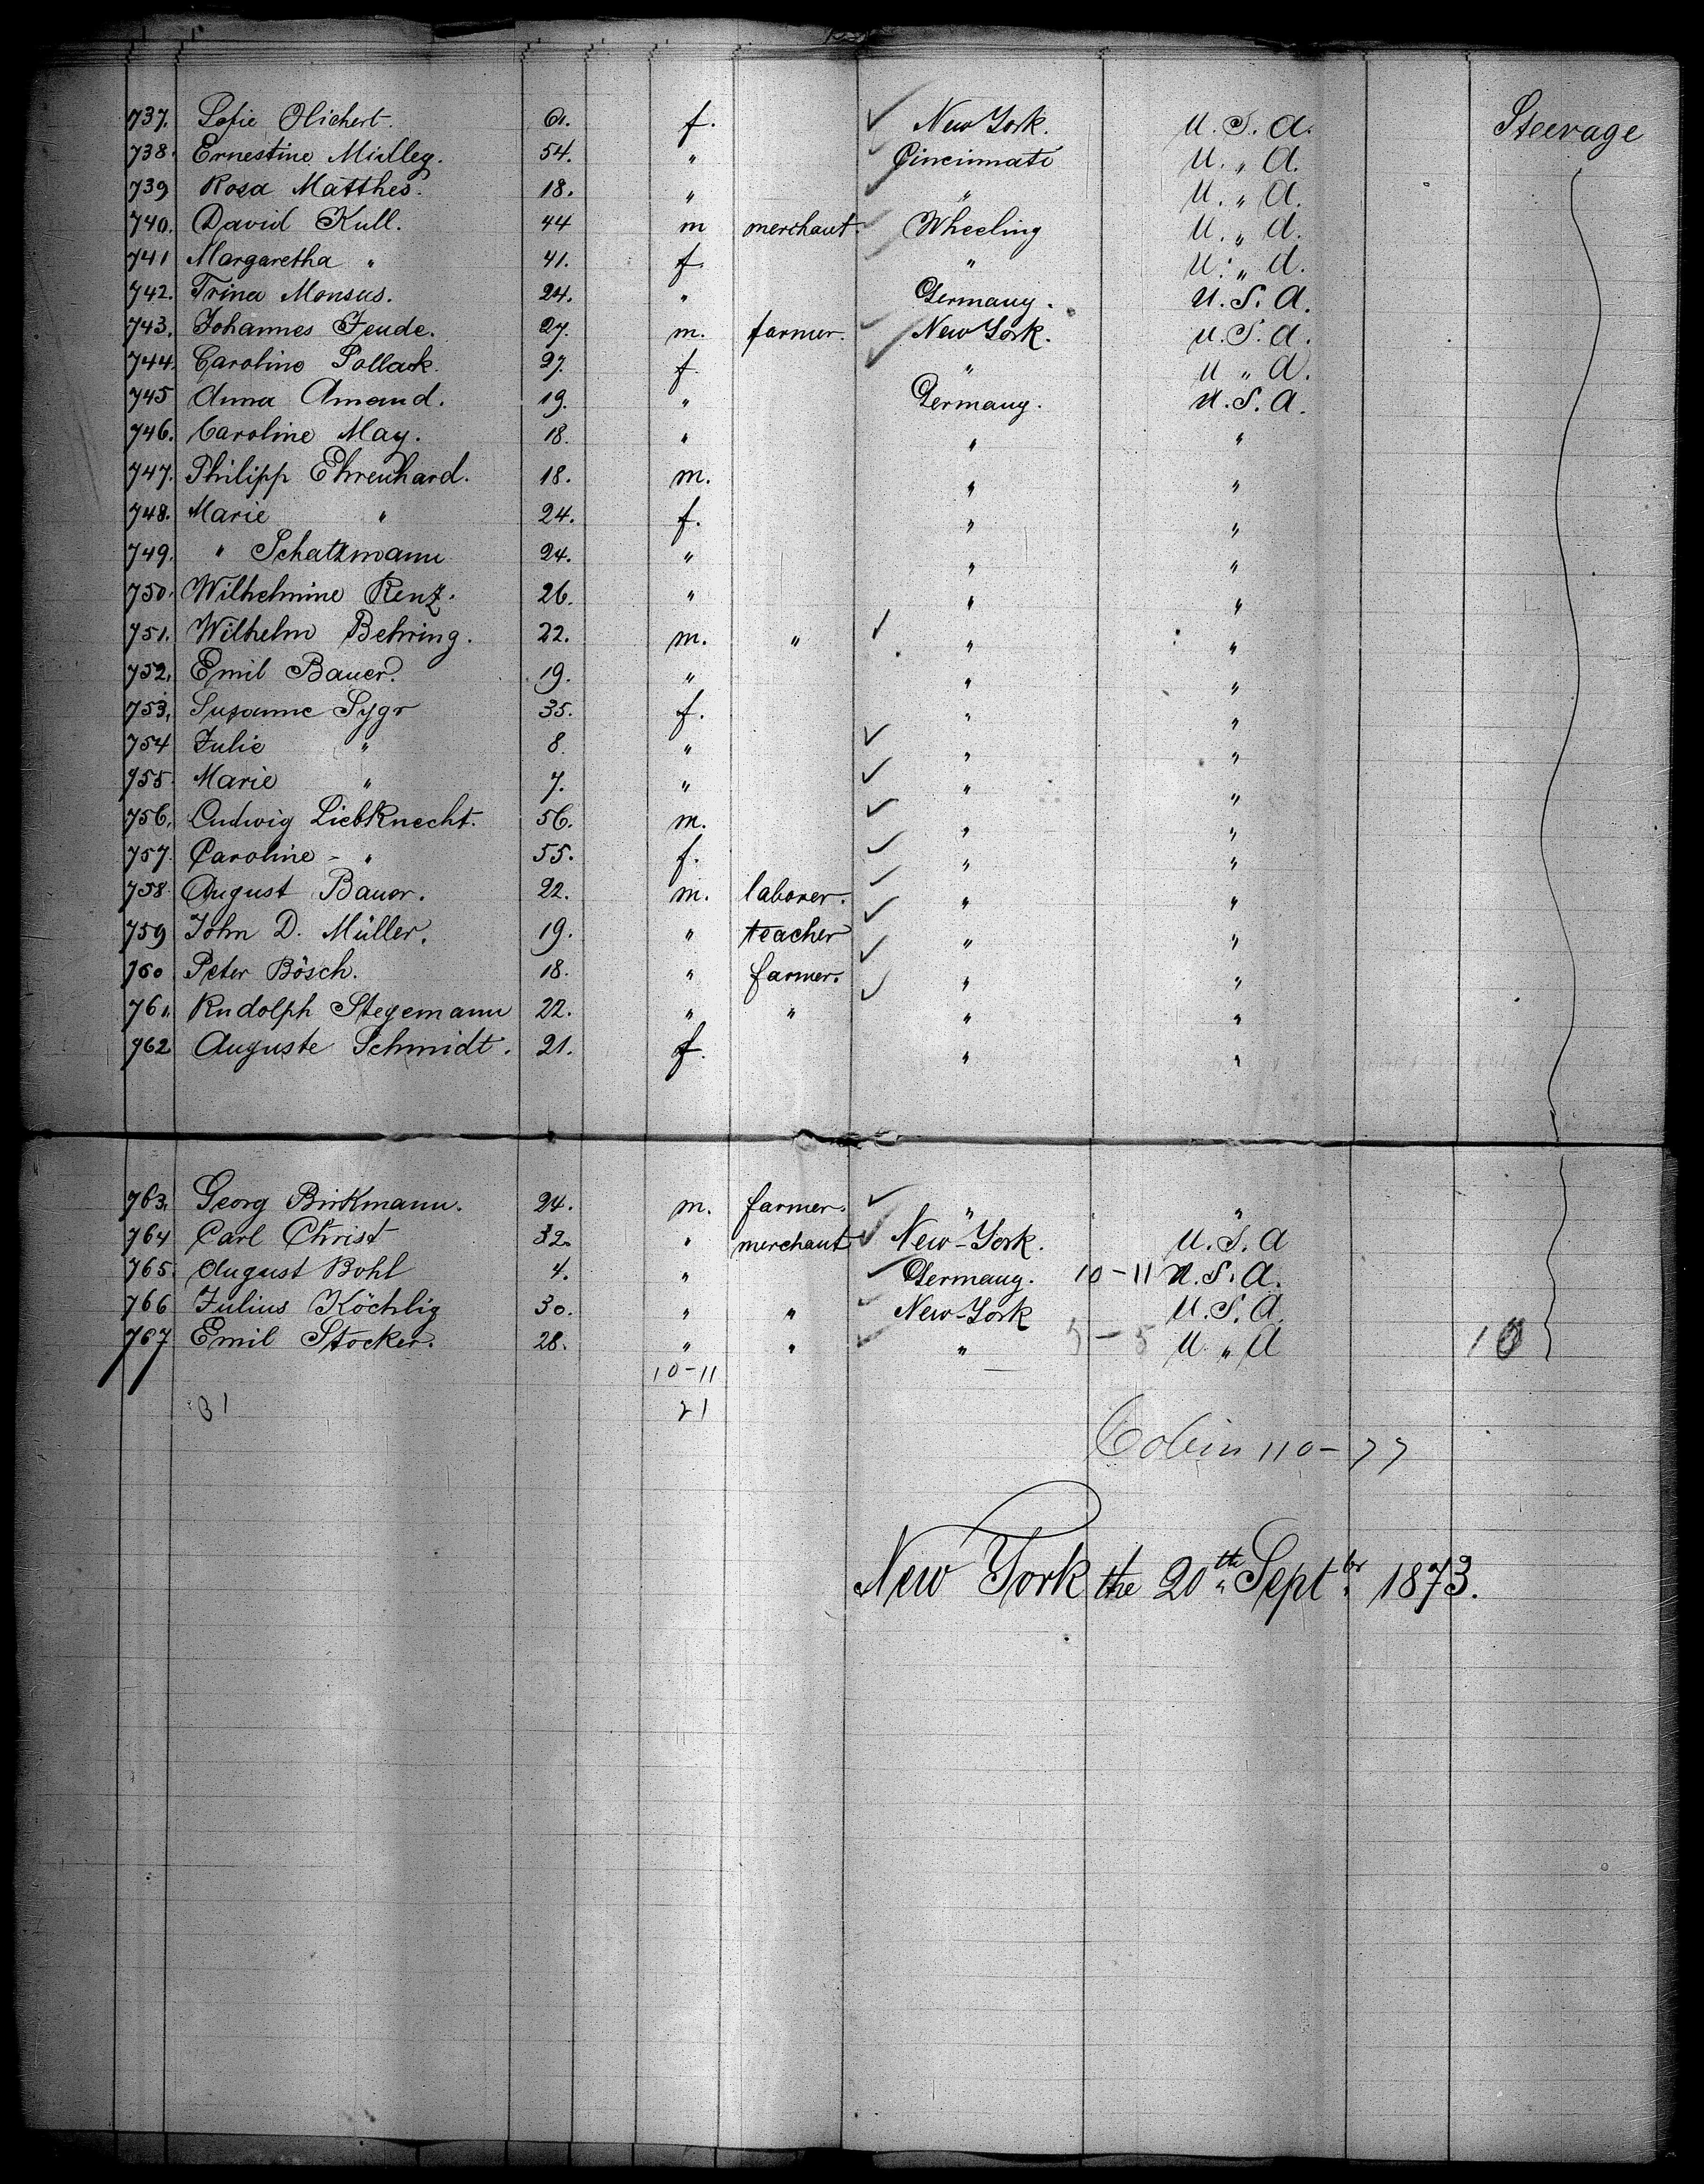 737. Sofie Olichert. 61. f. New York. U. S. A. Steerage
738. Ernestine 54. " Cincinnati U. " A.
739 Rosa Matthes. 18. " " U. " A.
740. David Kull. 44 m merchant. Wheeling U. " A.
741 Margaretha " 41. f. " U. " A.
742. Trina Monsus. 24. " Germany. U. S. A.
743. Johannes 27. m. farmer. New York. U. S. A.
744. Caroline Pollack. 27. f. " U " A.
745 Anna Amend. 19. " Germany. U. S. A.
746. Caroline May. 18. " " "
747. Philipp Ehrenhard. 18. m. " "
748. Marie " 24. f. " "
749. " Schatzmann 24. " " "
750. Wilhelmine Renz. 26. " " "
751. Wilhelm Behring. 22. m. " " "
752. Emil Bauer. 19. " " "
753. Susanne Sygr 35. f. " "
754 Julie " 8. " " "
755. Marie " 7. " " "
756. Ludwig Liebknecht. 56. m. " "
757. Caroline - " 55. f. " "
758. August Bauer. 22. m. laborer. " "
759 John D. Müller. 19. " teacher " "
760 Peter Bösch. 18. " farmer. " "
761. Rudolph Stegemann 22. " " " "
762 Auguste Schmidt. 21. f. " "
763. Georg Birkmann. 24. m. farmer. " "
764 Carl Christ 32. " merchant New-York. U. S. A
765. August Bohl 4. " Germany. 10-11 U. S. A.
766 Julius Köchlig 30. " " New-York U. S. A.
767 Emil Stocker. 28. " " " 5-5 U. " A 10
10-11
31 21
110-77
New York the 20th Septbr 1873.